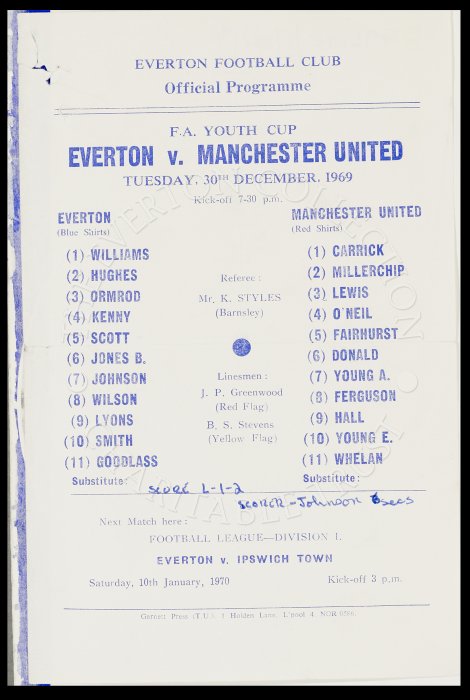 EVERTON FOOTBALL CLUB
Official Programme
F.A. YOUTH CUP
EVERTON v. MANCHESTER UNITED
TUESDAY, 30TH DECEMBER, 1969
Kick-off 7-30 p.m.
EVERTON
(Blue Shirts)
(1) WILLIAMS
(2) HUGHES
(3) ORMROD
(4) KENNY
(5) SCOTT
(6) JONES B.
(7) JOHNSON
(8) WILSON
(9) LYONS
(10) SMITH
(11) GOODLASS
Substitute:
Referee:
Mr. K. STYLES
(Barnsley)
Linesmen:
J. P. Greenwood
(Red Flag)
B. S. Stevens
(Yellow Flag)
MANCHESTER UNITED
(Red Shirts)
(1) CARRICK
(2) MILLERCHIP
(3) LEWIS
(4) O'NEIL
(5) FAIRHURST
(6) DONALD
(7) YOUNG A.
(8) FERGUSON
(9) HALL
(10) YOUNG E.
(11) WHELAN
Substitute:
SCORE L-1-2
SCORER - Johnson secs
Next Match here:
FOOTBALL LEAGUE—DIVISION I.
EVERTON v. IPSWICH TOWN
Saturday, 10th January, 1970 Kick-off 3 p.m.
Garnett Press (T.U.), 4 Holden Lane, L'pool 4 NOR 0586.
EVERTON COLLECTION
CHARITABLE TRUST